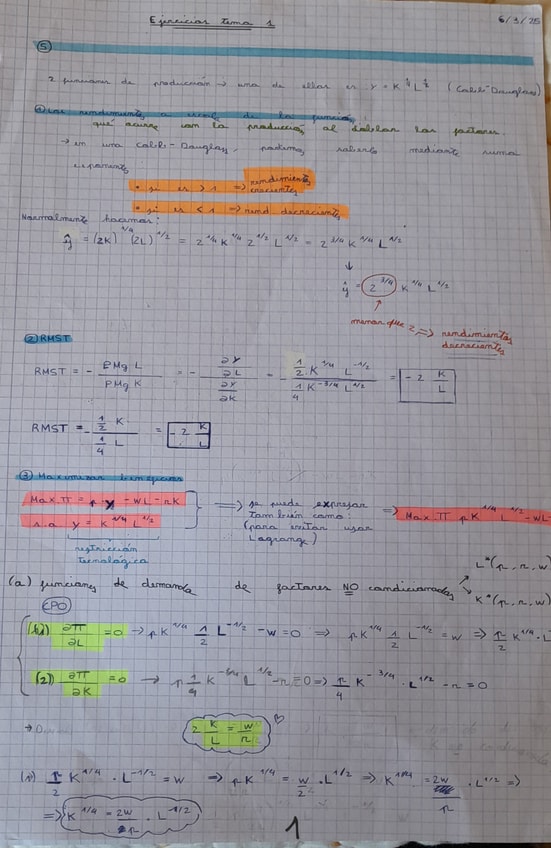 Ejercicios tema 1
6/3/25
⑤
2 funciones de producción → una de ellas es: Y = K^1/4 L^1/2 (Cobb-Douglas)
① Los rendimientos a escala de la función:
qué ocurre con la producción al doblar los factores.
→ en una Cobb-Douglas, podemos saberlo mediante suma
exponentes
• si es > 1 => rendimientos crecientes
• si es < 1 => rend decrecientes
Normalmente hacemos:
ŷ = (2K)^1/4 (2L)^1/2 = 2^1/4 K^1/4 2^1/2 L^1/2 = 2^3/4 K^1/4 L^1/2
↓
ŷ = 2^3/4 K^1/4 L^1/2
menor que 2 => rendimientos
decrecientes
② RMST
RMST = - PMg L / PMg K = - (∂Y/∂L) / (∂Y/∂K) = (1/2 · K^1/4 L^-1/2) / (1/4 K^-3/4 L^1/2) = - 2 K/L
RMST = - (1/2 K) / (1/4 L) = - 2 K/L
③ Maximizar beneficios
Max π = p · y - wL - rK
s.a y = K^1/4 L^1/2
restricción
tecnológica
=> se puede expresar
también como:
(para evitar usar
Lagrange)
=> Max π p K^1/4 L^1/2 - wL
(a) funciones de demanda de factores NO condicionadas
L*(p, r, w)
K*(p, r, w)
CPO
(1) ∂π/∂L = 0 → p K^1/4 1/2 L^-1/2 - w = 0 => p K^1/4 1/2 L^-1/2 = w => p/2 K^1/4 · L
(2) ∂π/∂K = 0 → p 1/4 K^-3/4 L^1/2 - r = 0 => p/4 K^-3/4 · L^1/2 - r = 0
2 K/L = w/r
(1) p/2 K^1/4 · L^-1/2 = w => p K^1/4 = w/2 · L^1/2 => K^1/4 = 2w/p · L^1/2 =>
=> K^1/4 = 2w/p · L^1/2
1